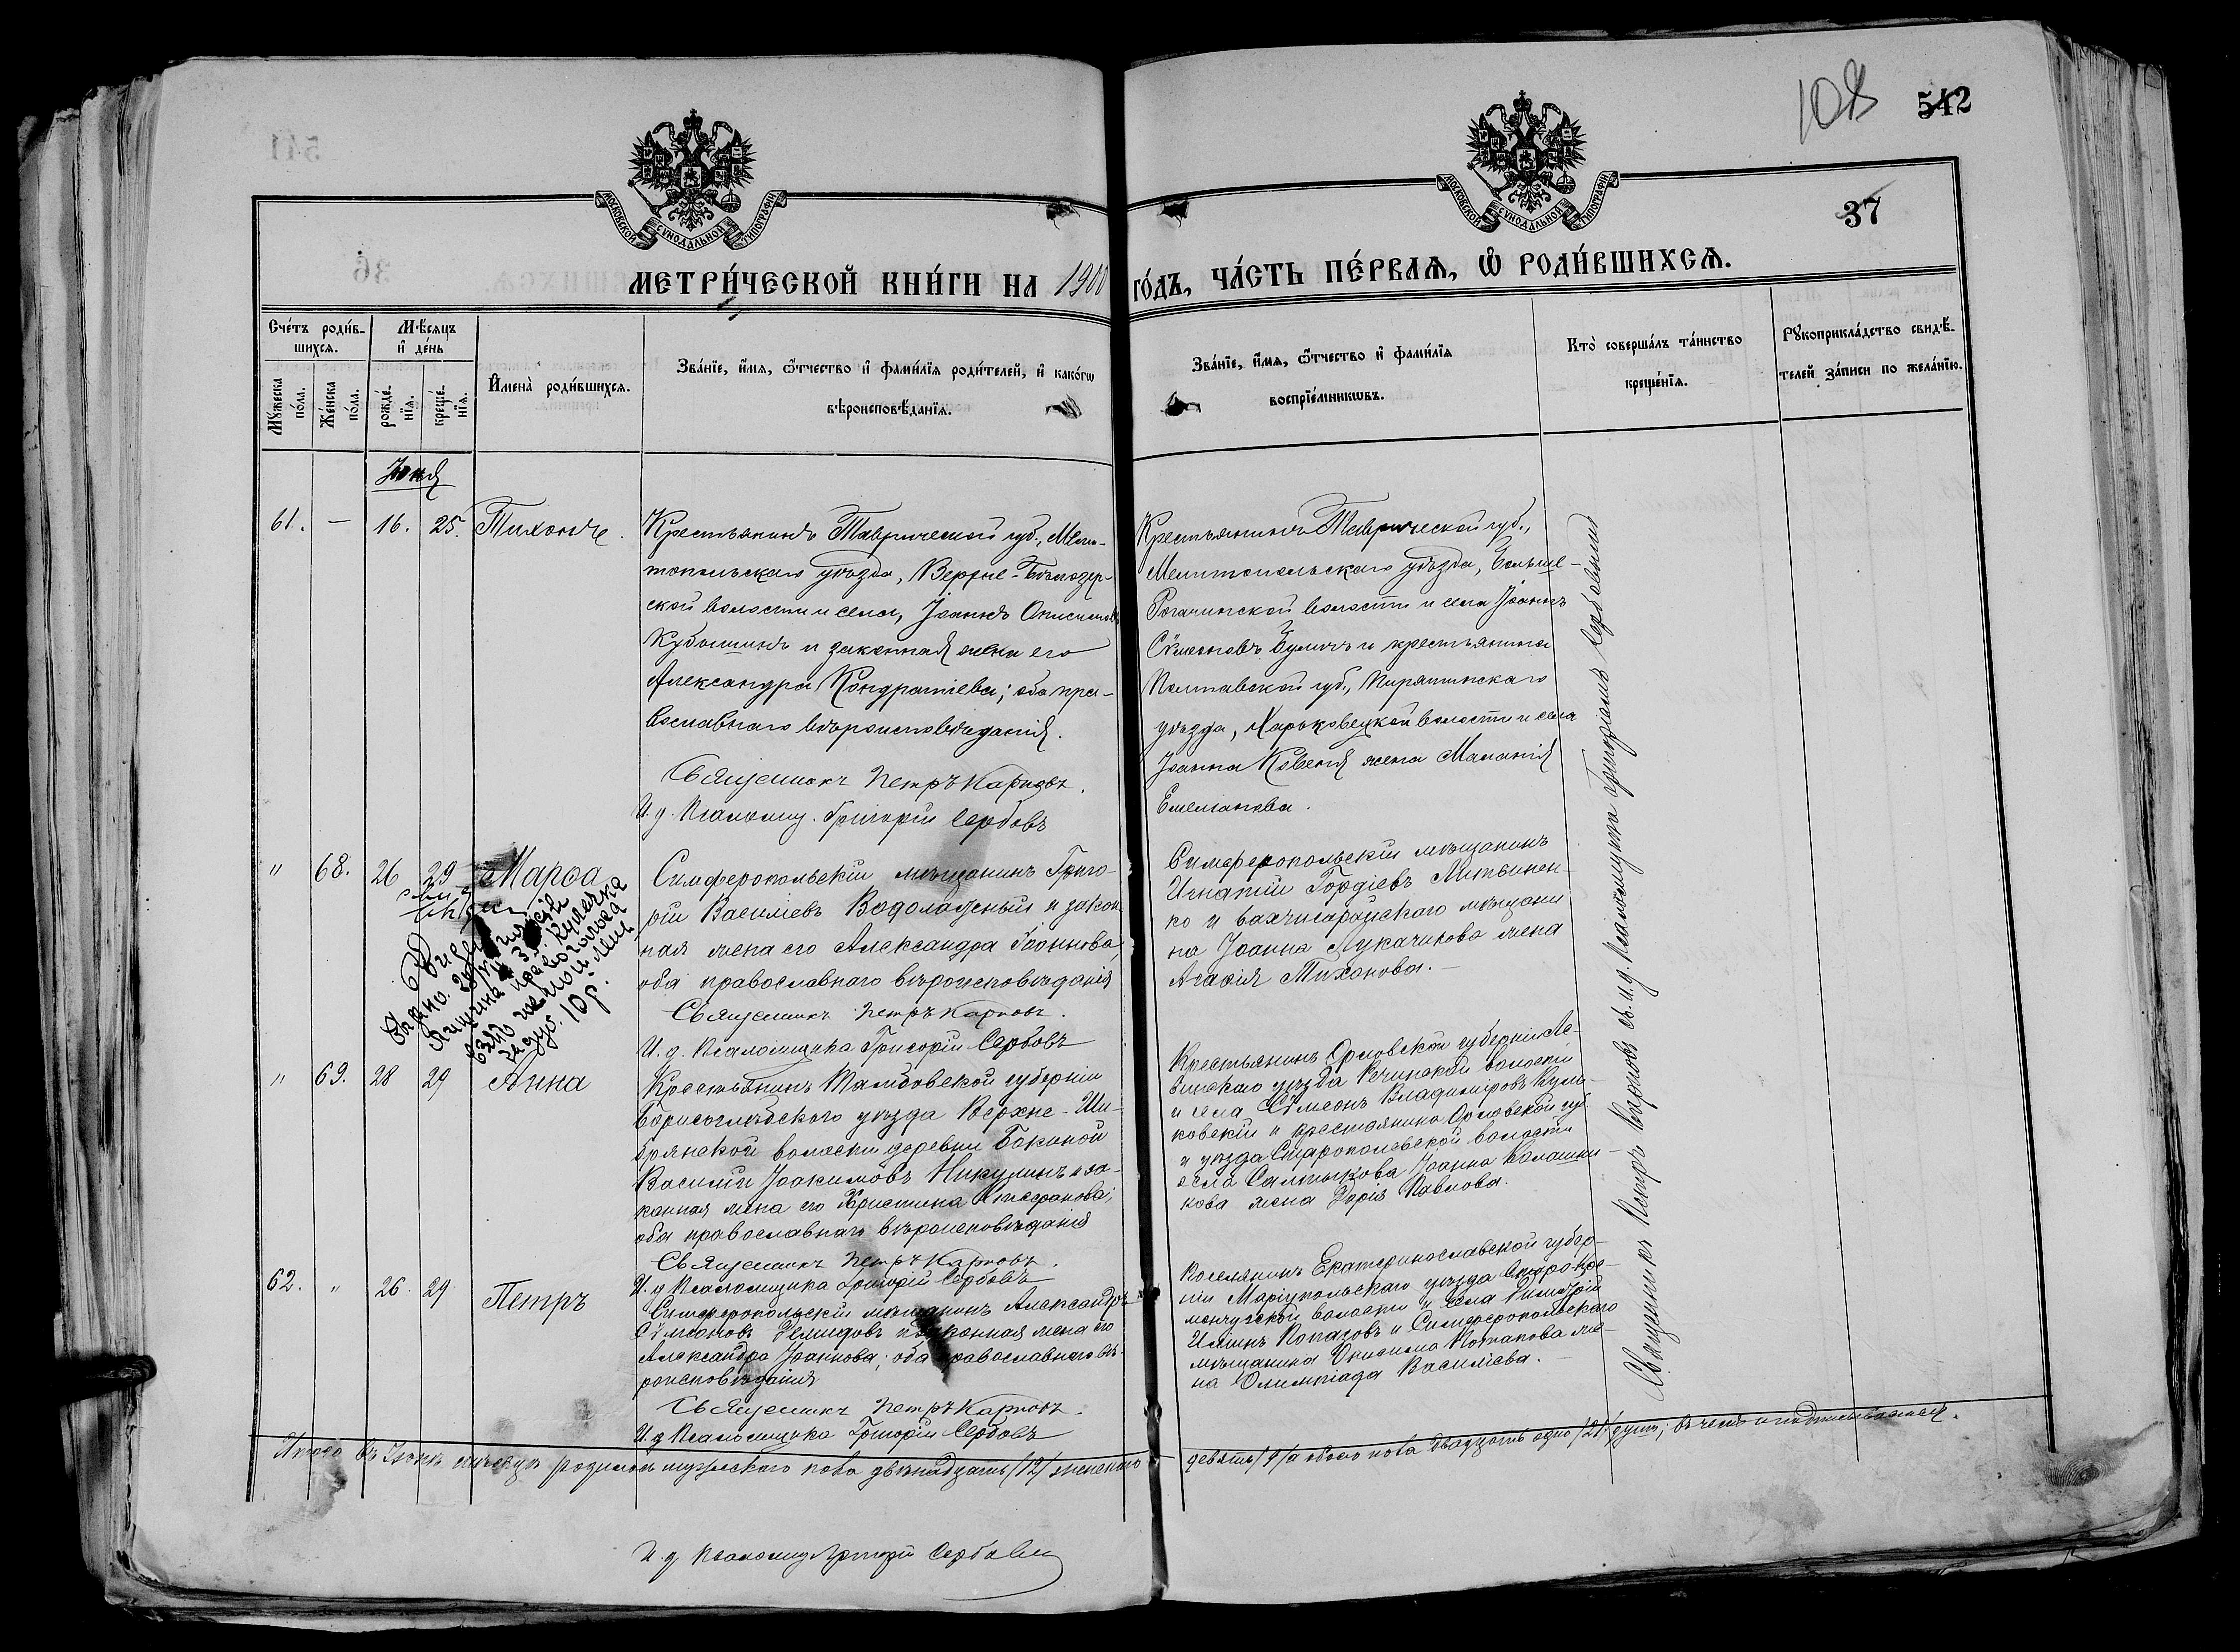 108
542
37
МОСКОВСКОЙ СУНОДАЛЬНОЙ ТИПОГРАФІИ
МОСКОВСКОЙ СУНОДАЛЬНОЙ ТИПОГРАФІИ
МЕТРИ́ЧЕСКОЙ КНИ́ГИ НА 1900 ГО́ДЪ, ЧА́СТЬ ПЕ́РВАѦ, Ѡ҆ РОДИ́ВШИХСѦ.
Сче́тъ роди́в-
шихсѧ.
Мꙋ́жеска по́ла.
Же́нска по́ла.
Мѣ́сяцъ
и҆ де́нь
рожде́-нїѧ.
креще́-нїѧ.
И҆мена̀ роди́вшихсѧ.
Зва́нїе, и҆́мѧ, ѻ҆́тчество и҆ фами́лїѧ роди́телей, и҆ како́гѡ
вѣроисповѣ́данїѧ.
Зва́нїе, и҆́мѧ, ѻ҆́тчество и҆ фами́лїѧ
воспрїе́мникѡвъ.
Кто̀ соверша́лъ та́инство
креще́нїѧ.
Рꙋкоприкла́дство свидѣ́-
телей за́писи по жела́нїю.
Іюня
61. — 16. 25. Тихонъ.
Крестьянинъ Таврической губ., Мели-
топольскаго уѣзда, Верхне-Бѣлозер-
ской волости и села, Іоаннъ Онисимовъ
Кубышинъ и законная жена его
Александра Кондратіева; оба пра-
вославнаго вѣроисповѣданія.
Священникъ Петръ Карповъ.
И. д. Псаломщ. Григорій Сербовъ
Крестьянинъ Таврической губ.,
Мелитопольскаго уѣзда, Больше-
Рогачинской волости и села Іоаннъ
Сѵмеоновъ и крестьянина
Полтавской губ., Пирятинскаго
уѣзда, Харьковецкой волости и села
Іоанна жена Маланія
Емельянова.
" 68. 26 29 Марѳа
Симферопольскій мѣщанинъ Григо-
рій Василіевъ Водолазный и закон-
ная жена его Александра Іоаннова,
оба православнаго вѣроисповѣданія
Священникъ Петръ Карповъ.
И. д. Псаломщика Григорій Сербовъ
Симферопольскій мѣщанинъ
Игнатій Гордіевъ Литвинен-
ко и бахчисарайскаго мѣщани
на Іоанна Лукачикова жена
Агаѳія Тихонова.—
взято
за дуб. 10 р.
" 69. 28 29 Анна
Крестьянинъ Тамбовской губерніи
Борисоглѣбскаго уѣзда Верхне-Ши-
брянской волости деревни Бокиной
Василій Іоакимовъ Никулинъ и за-
конная жена его Христина Стефанова;
оба православнаго вѣроисповѣданія
Священникъ Петръ Карповъ.
И. д. Псаломщика Григорій Сербовъ
Крестьянинъ Орловской губерніи Ли-
винскаго уѣзда Речинской волости
и села Сѵмеонъ Владиміровъ Кули-
ковскій и крестьянина Орловской губ.
и уѣзда волости
села Салтыкова Іоанна Калашни-
кова жена Дарія Павлова.
62. " 26. 29 Петръ
Симферопольскій мѣщанинъ Александръ
Сѵмеоновъ Демидовъ и законная жена его
Александра Іоаннова; оба православнаго вѣ-
роисповѣданія
Священникъ Петръ Карповъ.
И. д. Псаломщика Григорій Сербовъ
Поселянинъ Екатеринославской губер-
ніи Маріупольскаго уѣзда Старо-Кре-
менчугской волости и села Димитрій
Ильинъ Копазовъ и Симферопольскаго
мѣщанина Онисима Потапова же-
на Олимпіада Василіева.—
Священникъ Петръ Карповъ съ и. д. псаломщика Григоріемъ Сербовымъ
Итого въ Іюнѣ мѣсяцѣ родилось мужескаго пола двѣнадцать /12/ женскаго девять /9/ а обоего пола двадцать одно /21/ душъ; въ чемъ и подписываемся.
И. д. Псаломщ. Григорій Сербовъ